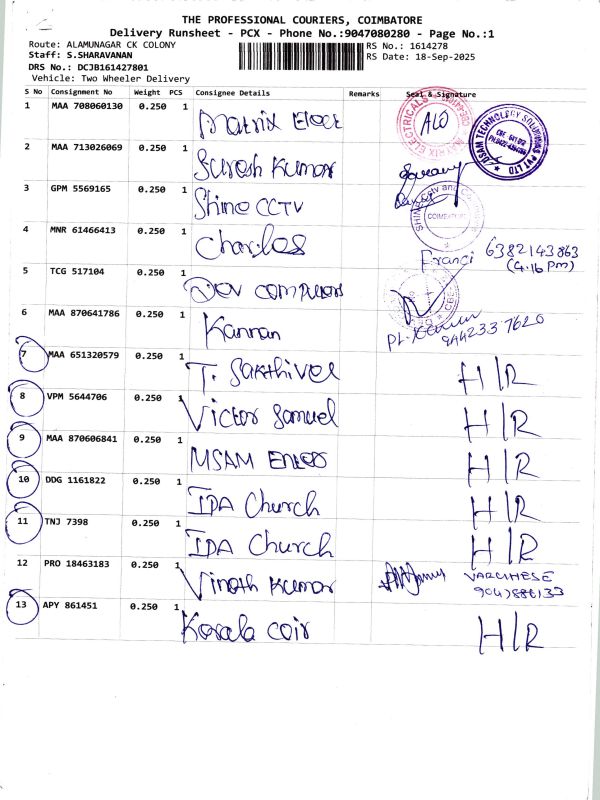 THE PROFESSIONAL COURIERS, COIMBATORE
Delivery Runsheet - PCX - Phone No.:9047080280 - Page No.:1
Route: ALAMUNAGAR CK COLONY
RS No.: 1614278
Staff: S.SHARAVANAN
RS Date: 18-Sep-2025
DRS No.: DCJB161427801
Vehicle: Two Wheeler Delivery
S No Consignment No Weight PCS Consignee Details Remarks Seal & Signature
1 MAA 708060130 0.250 1 Matrix Elect
2 MAA 713026069 0.250 1 Suresh Kumar
3 GPM 5569165 0.250 1 Shine CCTV
4 MNR 61466413 0.250 1 Charles Franci 6382143863
(4.16 pm)
5 TCG 517104 0.250 1 Dev computers
6 MAA 870641786 0.250 1 Kannan 9442337620
7 MAA 651320579 0.250 1 T. Sakthivel H/R
8 VPM 5644706 0.250 1 Victor Samuel H/R
9 MAA 870606841 0.250 1 MSAM Enteos H/R
10 DDG 1161822 0.250 1 IPA Church H/R
11 TNJ 7398 0.250 1 IPA Church H/R
12 PRO 18463183 0.250 1 Vinoth Kumar VARGHESE
9047886133
13 APY 861451 0.250 1 Kerala coir H/R